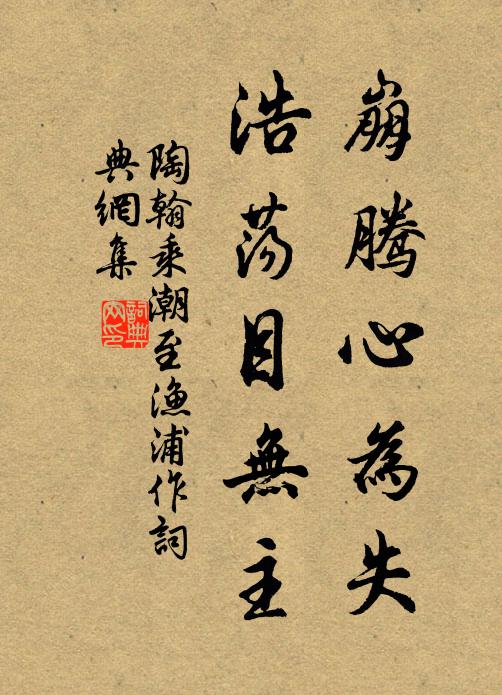 崩騰心為失
浩蕩目無主
陶翰乘潮至漁浦作詞
典網集
詞典網印